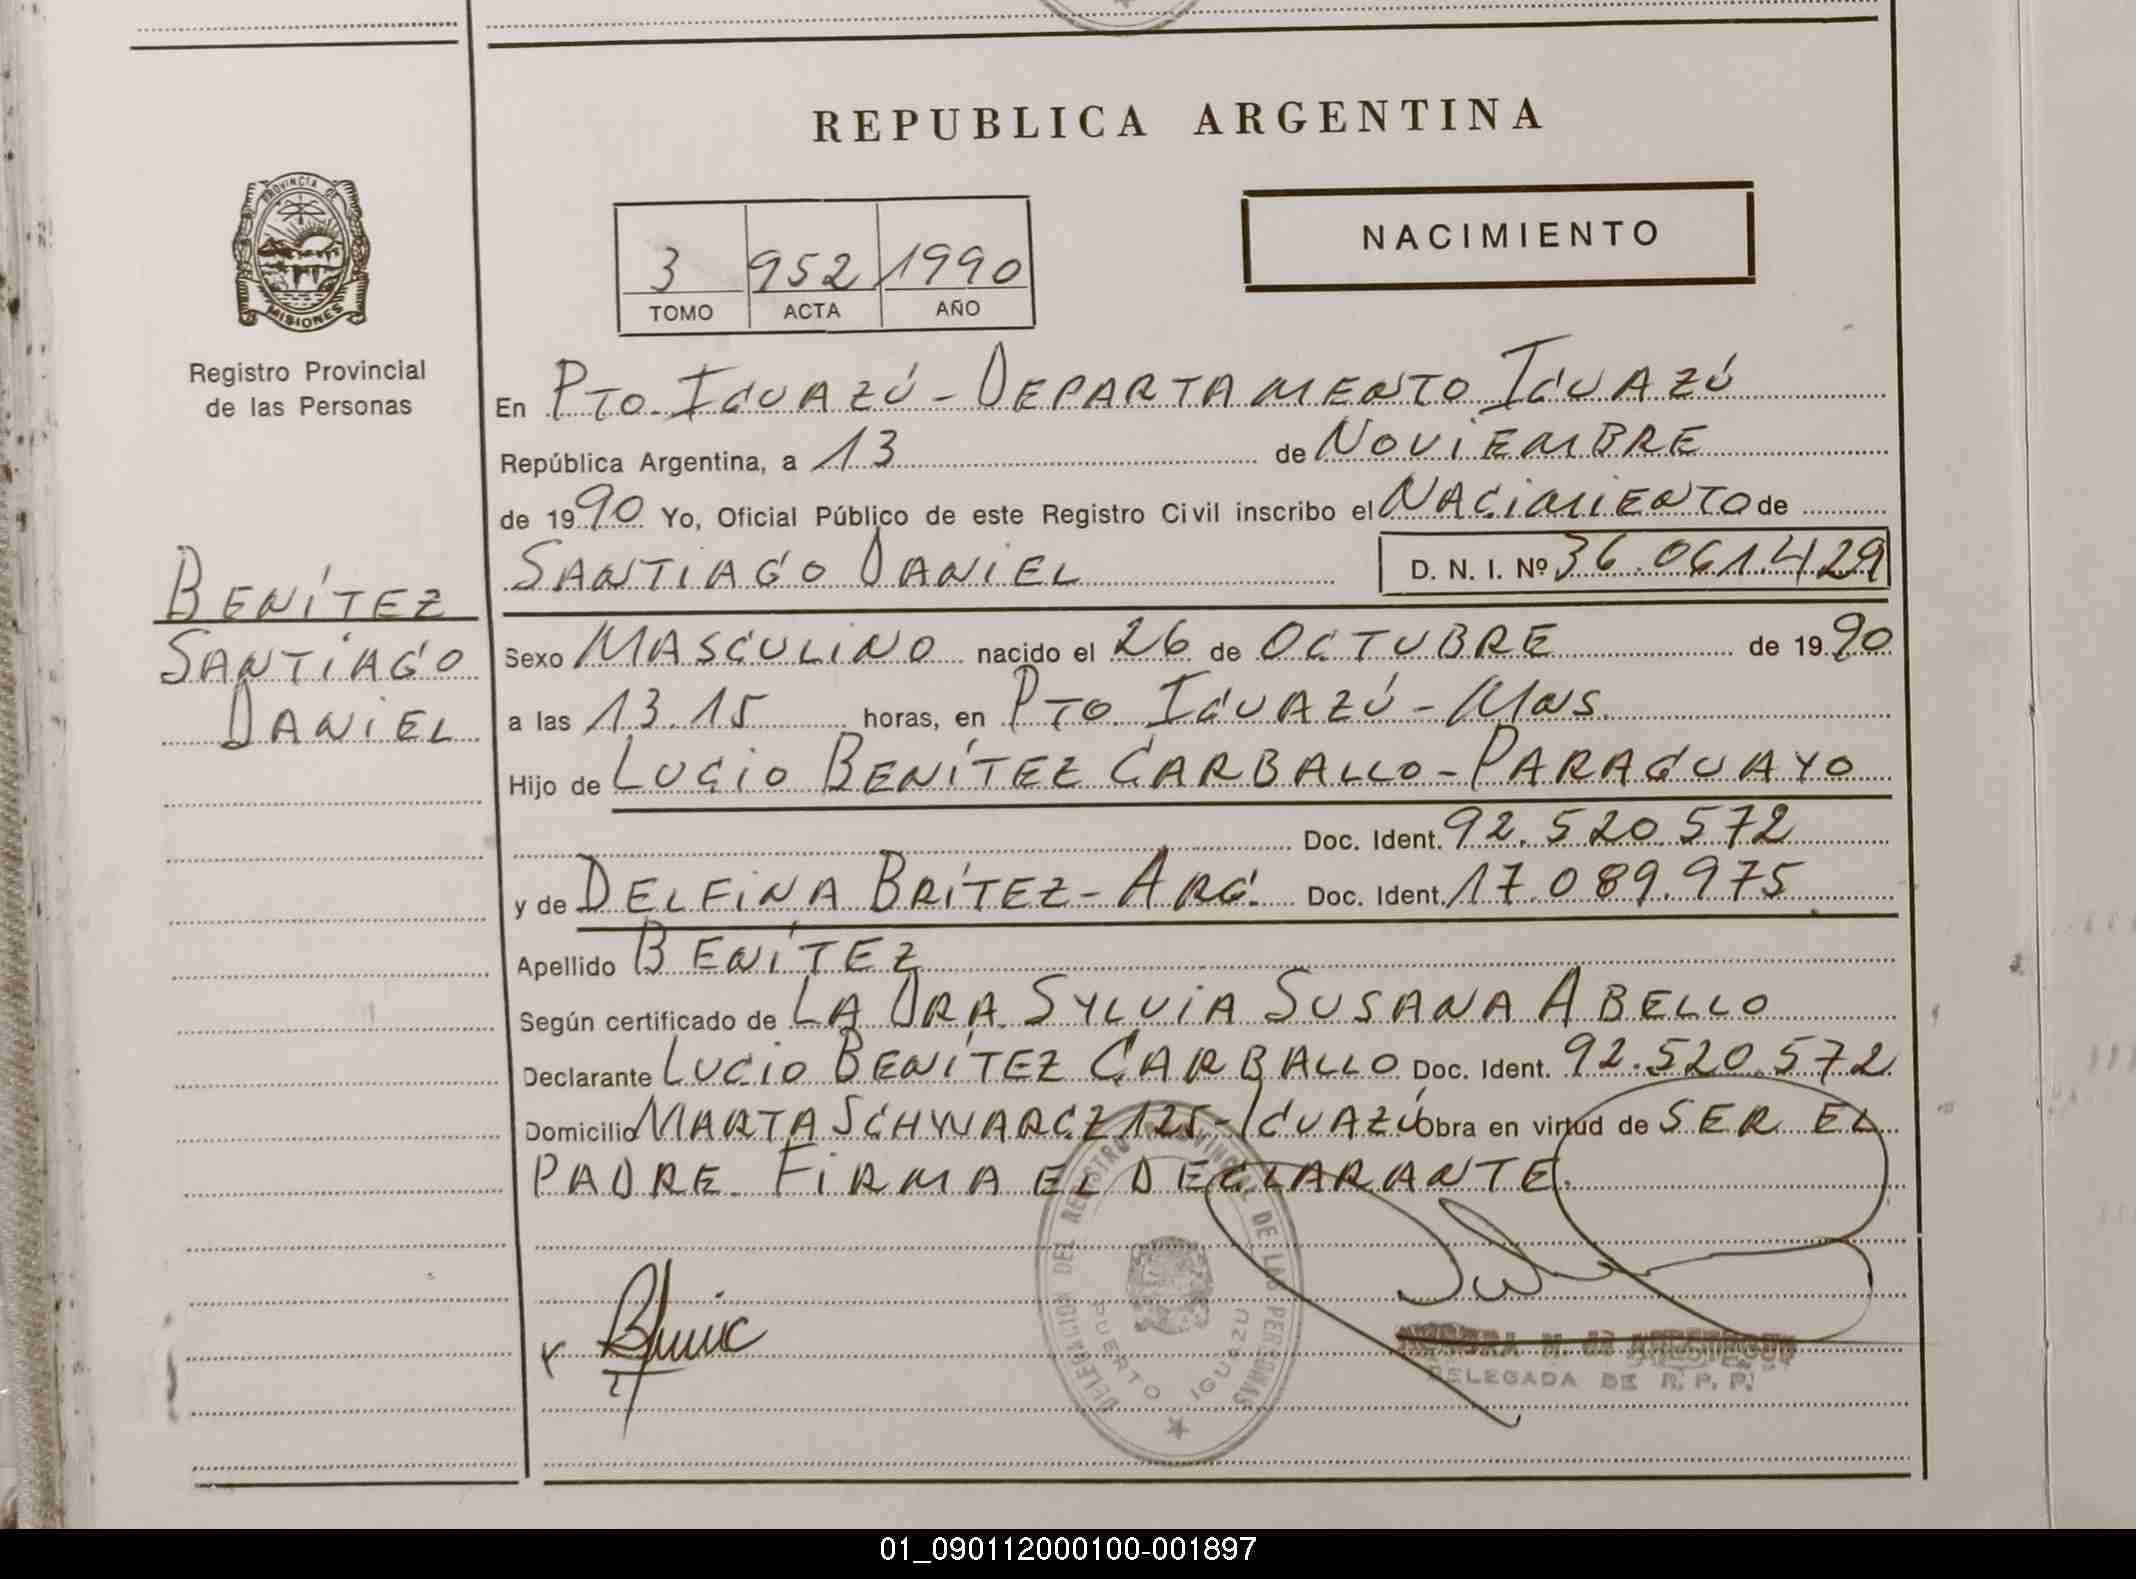 REPUBLICA ARGENTINA
PROVINCIA DE
MISIONES
Registro Provincial
de las Personas
NACIMIENTO
3 952 1990
TOMO ACTA AÑO
En PTO. IGUAZÚ - DEPARTAMENTO IGUAZÚ
República Argentina, a 13 de NOVIEMBRE
de 1990 Yo, Oficial Público de este Registro Civil inscribo el NACIMIENTO de
SANTIAGO DANIEL D. N. I. Nº 36.061.429
BENÍTEZ
SANTIAGO
DANIEL
Sexo MASCULINO nacido el 26 de OCTUBRE de 1990
a las 13.15 horas, en PTO IGUAZÚ - Mns.
Hijo de LUCIO BENÍTEZ CARBALLO - PARAGUAYO
Doc. Ident. 92.520.572
y de DELFINA BRÍTEZ - ARG. Doc. Ident. 17.089.975
Apellido BENÍTEZ
Según certificado de LA DRA. SYLVIA SUSANA ABELLO
Declarante LUCIO BENÍTEZ CARBALLO Doc. Ident. 92.520.572
Domicilio MARTA SCHWARCZ 125 - IGUAZÚ Obra en virtud de SER EL
PADRE. FIRMA EL DECLARANTE.
DELEGACION DEL REGISTRO PROVINCIAL DE LAS PERSONAS
PUERTO IGUAZU
DELEGADA DE R. P. P.
01_090112000100-001897